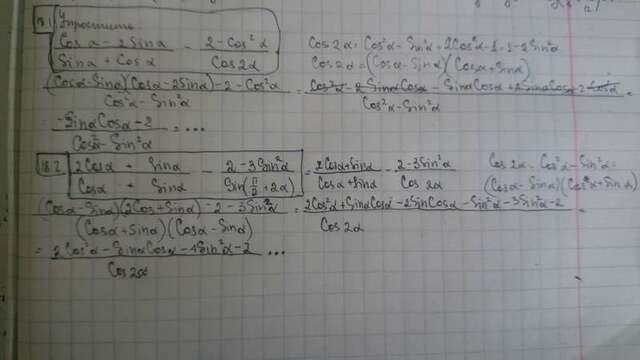 18.1 Упростить:
(Cos α - 2Sin α)/(Sin α + Cos α) - (2 - Cos²α)/(Cos 2α)
Cos 2α = Cos²α - Sin²α = 2Cos²α - 1 = 1 - 2Sin²α
Cos 2α = (Cos α - Sin α)(Cos α + Sin α)
((Cos α - Sin α)(Cos α - 2Sin α) - 2 - Cos²α)/(Cos²α - Sin²α) = (Cos²α - 2Sin α Cos α - Sin α Cos α + 2Sin α Cos α - 2 - Cos²α)/(Cos²α - Sin²α) =
(-Sin α Cos α - 2)/(Cos²α - Sin²α) = ...
18.2 (2Cos α + Sin α)/(Cos α + Sin α) - (2 - 3Sin²α)/(Sin(π/2 + 2α)) = (2Cos α + Sin α)/(Cos α + Sin α) - (2 - 3Sin²α)/(Cos 2α)
Cos 2α = Cos²α - Sin²α =
(Cos α - Sin α)(Cos α + Sin α)
((Cos α - Sin α)(2Cos + Sin α) - 2 - 3Sin²α)/((Cos α + Sin α)(Cos α - Sin α)) = (2Cos²α + Sin α Cos α - 2Sin Cos α - Sin²α - 3Sin²α - 2)/(Cos 2α) =
= (2Cos²α - Sin α Cos α - 4Sin²α - 2)/(Cos 2α) ...